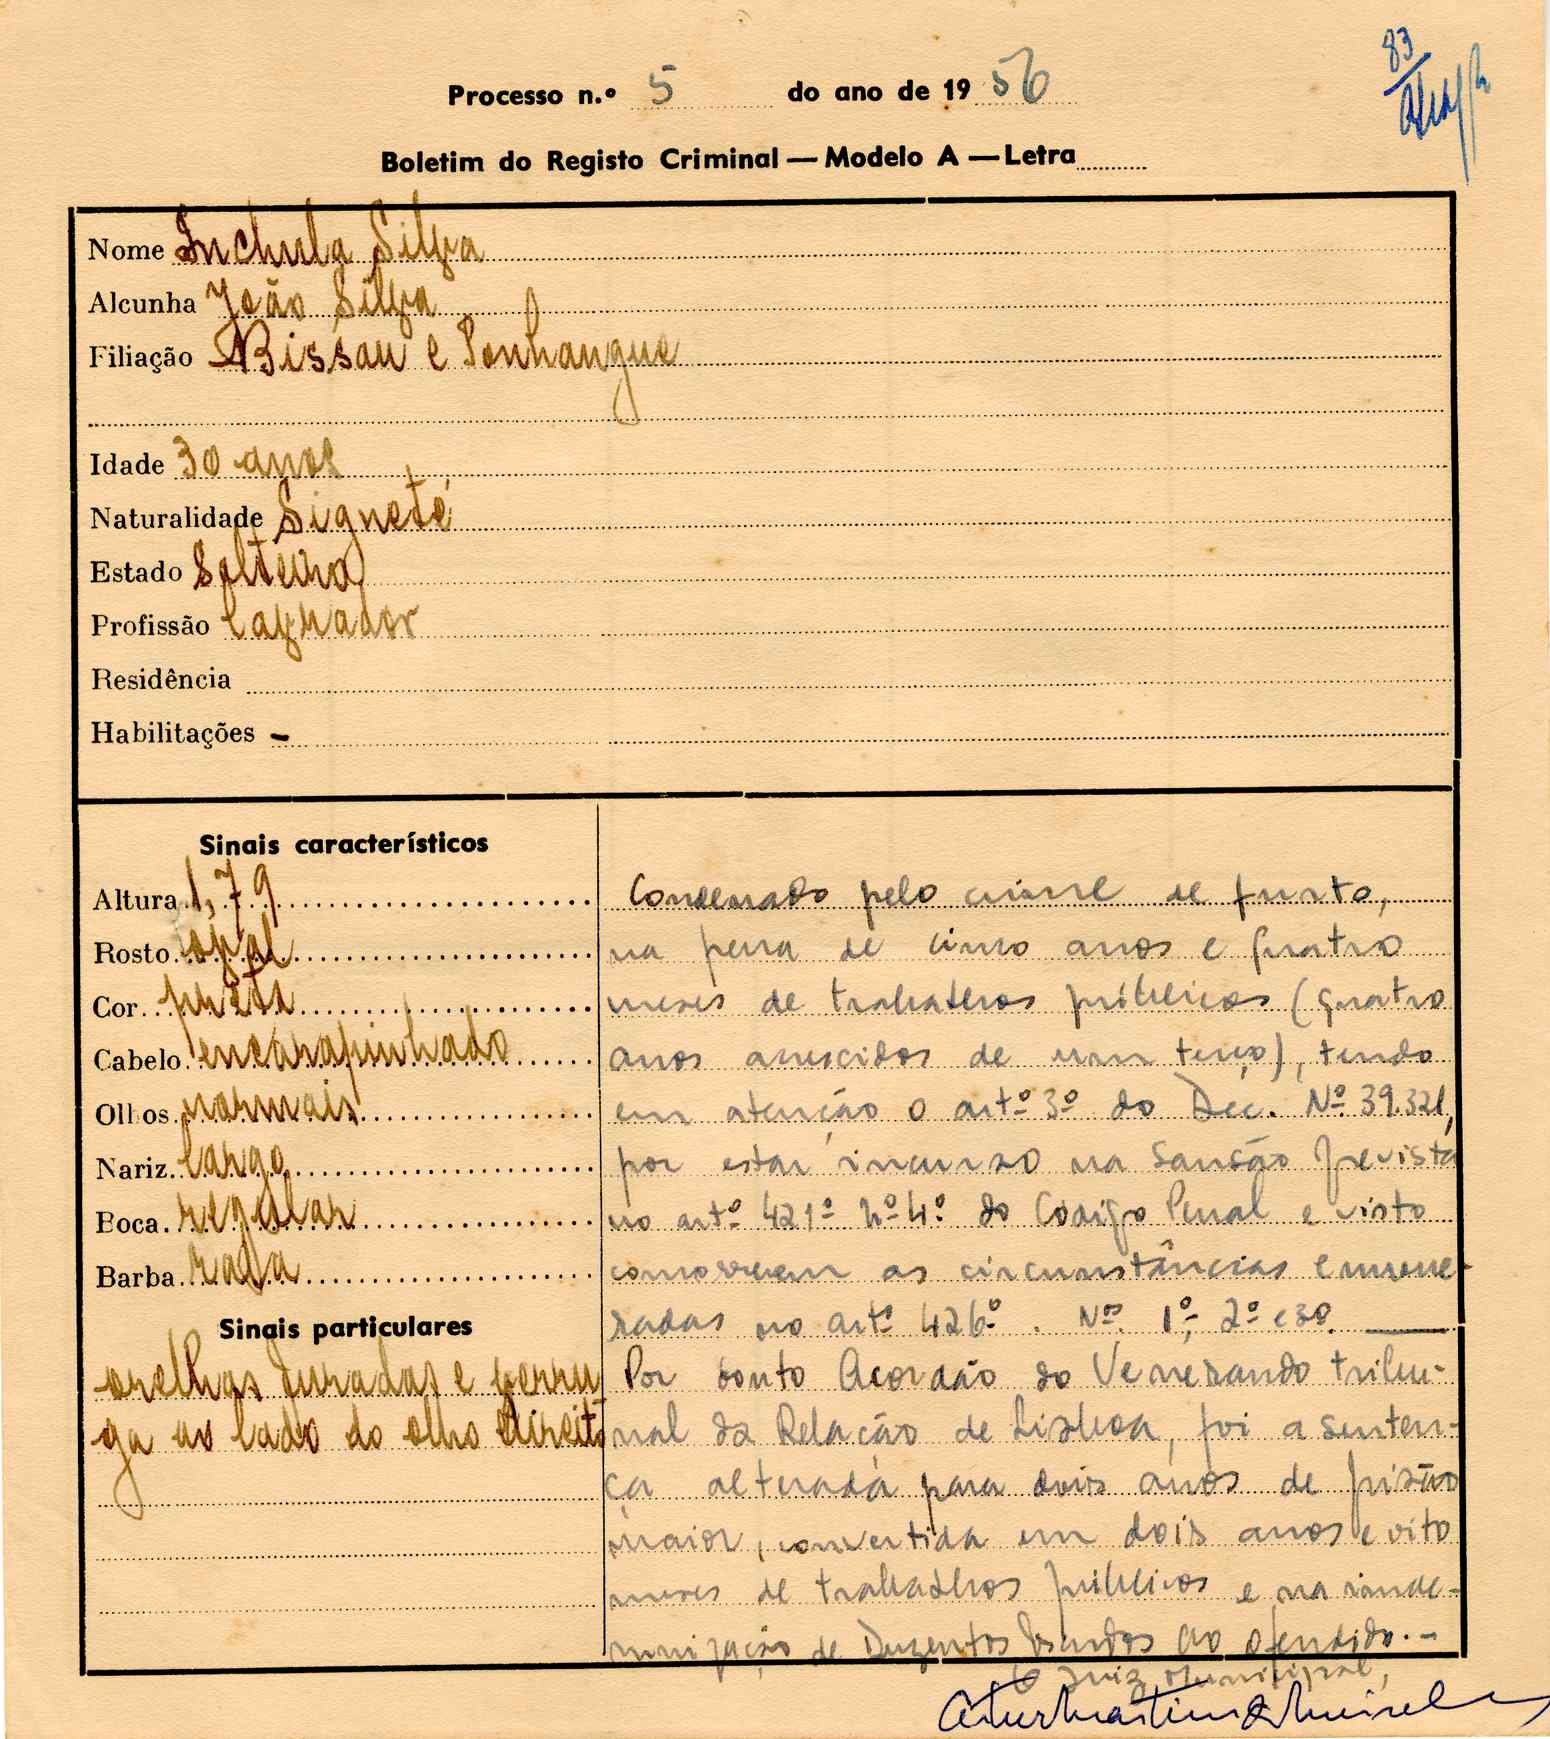 83
Processo n.º 5 do ano de 1956
Boletim do Registo Criminal — Modelo A — Letra
Nome Inchula Silva
Alcunha João Silva
Filiação Bissau e Ponhangue
Idade 30 anos
Naturalidade Signeté
Estado Solteiro
Profissão lavrador
Residência
Habilitações -
Sinais característicos
Altura 1,79
Rosto oval
Cor preta
Cabelo encarapinhado
Olhos normais
Nariz largo
Boca regular
Barba rapa
Sinais particulares
orelhas furadas e verru
ga ao lado do olho direito
Condenado pelo crime de furto,
na pena de cinco anos e quatro
meses de trabalhos públicos (quatro
anos acrescidos de um terço), tendo
em atenção o artº 3º do Dec. Nº 39.321,
por estar incurso na sansão prevista
no artº 421º nº 4º do Codigo Penal e visto
concorrerem as circunstâncias enume-
radas no artº 426º. Nºs. 1º, 2º e 3º.
Por douto Acordão do Venerando tribu-
nal da Relação de Lisboa, foi a senten-
ça alterada para dois anos de prisão
maior, convertida em dois anos e oito
meses de trabalhos públicos e na inde-
mnização de Duzentos Escudos ao ofendido.-
O Juiz Municipal,